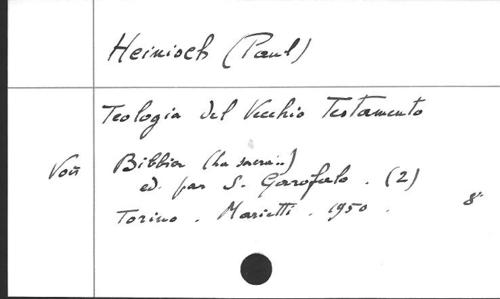 Heinisch (Paul)
Teologia del Vecchio Testamento
Voir Bibbia (La sacra..)
ed. par S. Garofalo . (2)
Torino . Marietti . 1950 . 8°